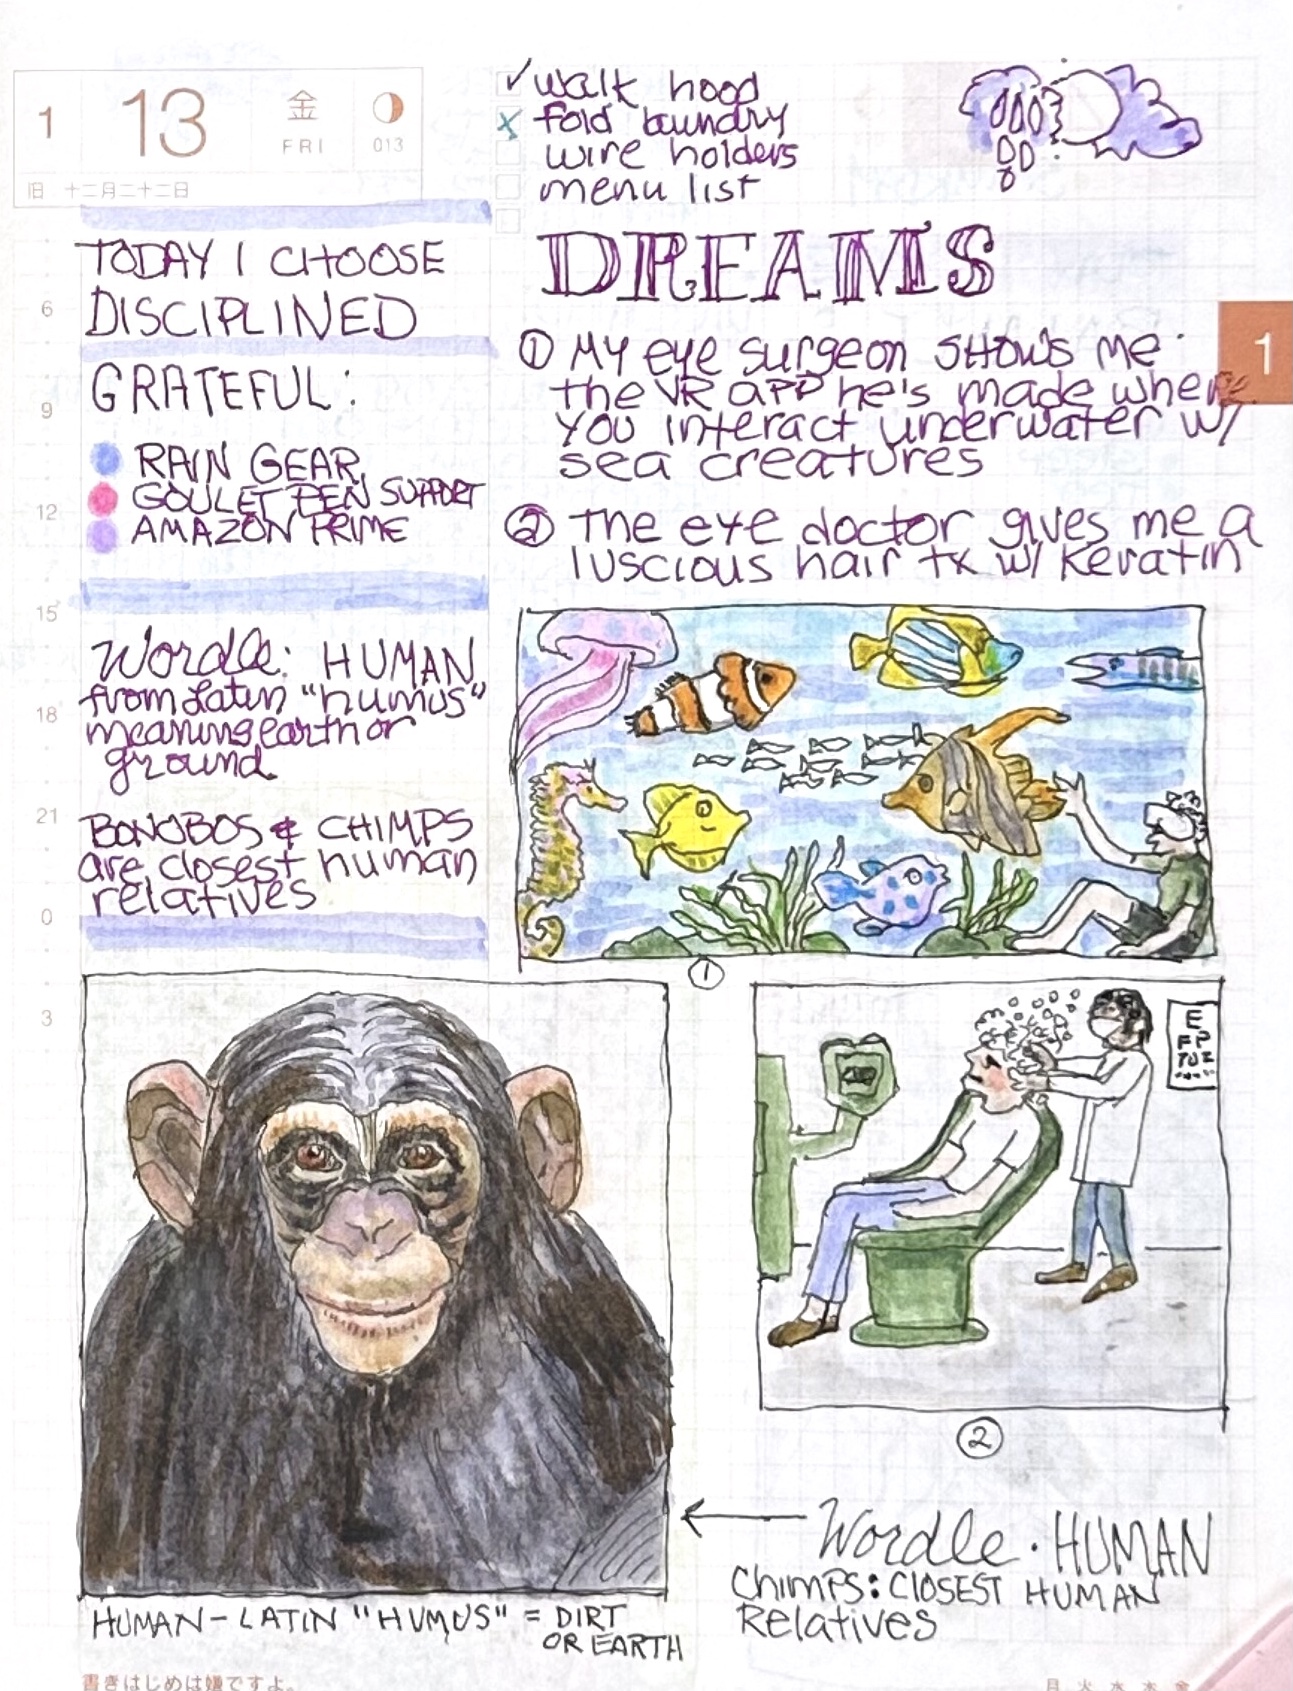 1
13
金
FRI
013
旧 十二月二十二日
✓ walk hood
x fold laundry
wire holders
menu list
TODAY I CHOOSE
DISCIPLINED
GRATEFUL:
RAIN GEAR
GOULET PEN SUPPORT
AMAZON PRIME
Wordle: HUMAN
from Latin "humus"
meaning earth or
ground
BONOBOS & CHIMPS
are closest human
relatives
6
9
12
15
18
21
0
3
DREAMS
1
① My eye surgeon SHOWS me
the VR APP he's made where
you interact underwater w/
sea creatures
② The eye doctor gives me a
luscious hair tx w/ Keratin
①
E
FP
TOZ
②
Wordle · HUMAN
Chimps: CLOSEST HUMAN
Relatives
HUMAN - LATIN "HUMUS" = DIRT
OR EARTH
書きはじめは嫌ですよ。
月 火 水 木 金